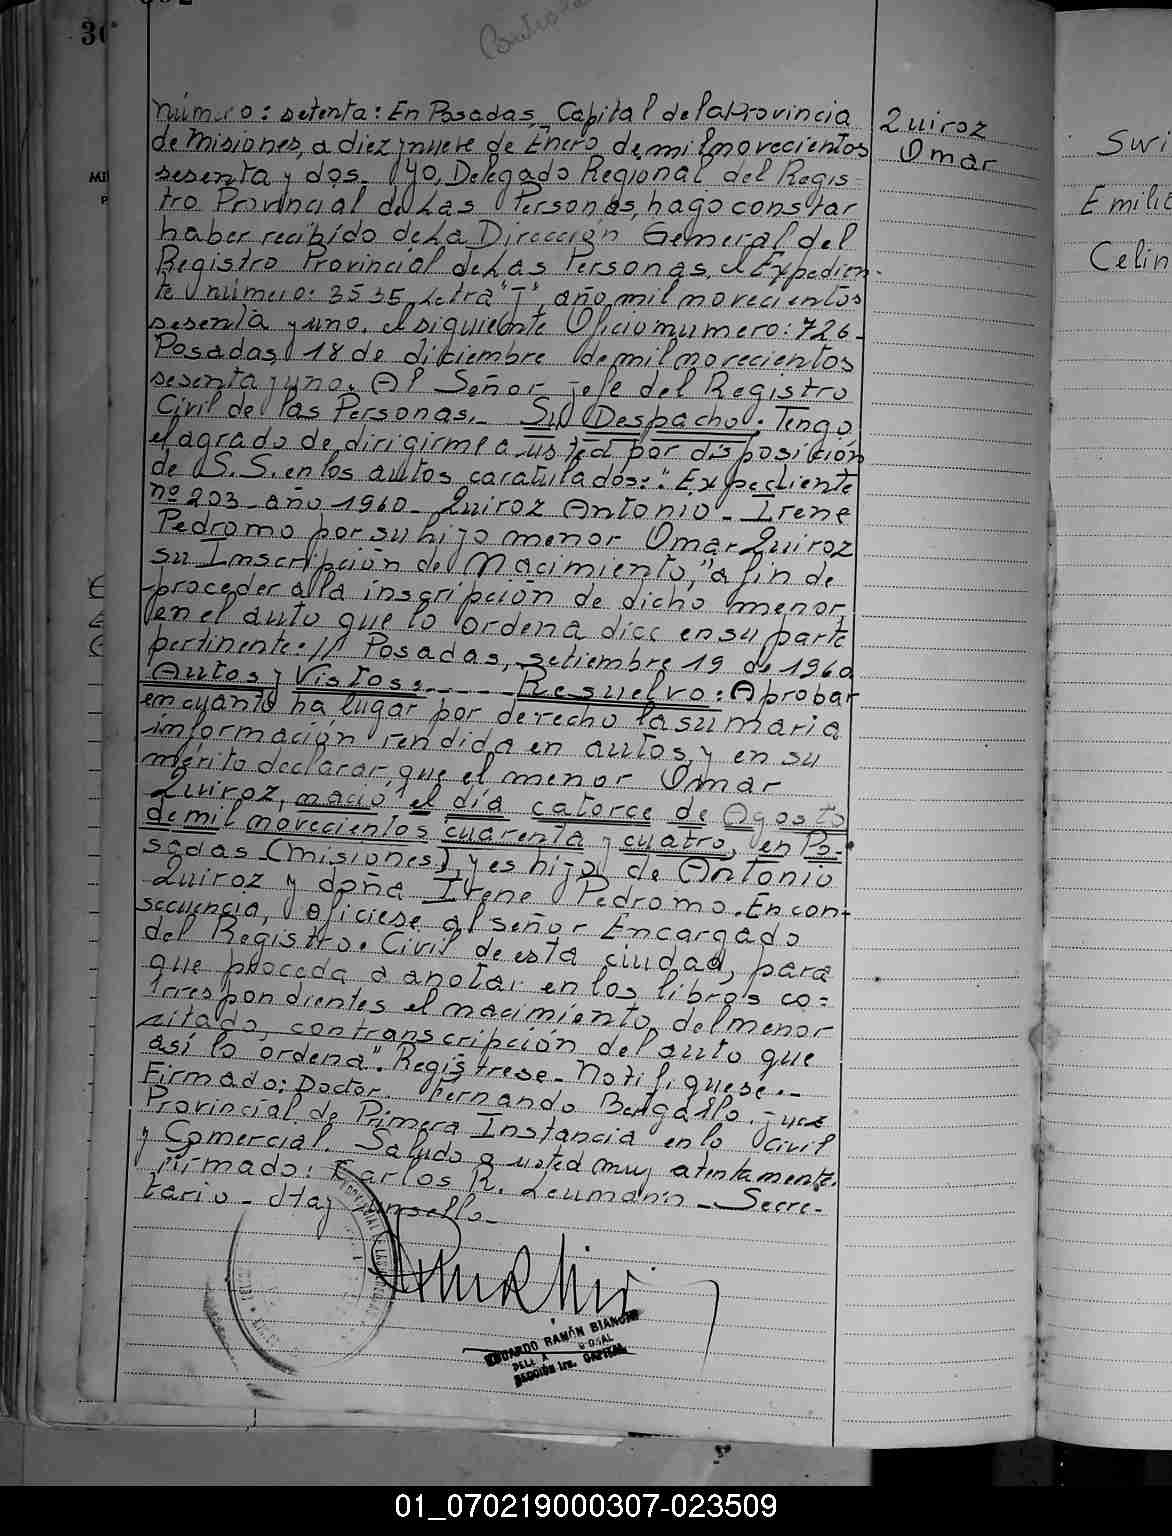 Controla
número: setenta: En Posadas, Capital de la Provincia
de Misiones, a diez y nueve de Enero de mil novecientos
sesenta y dos. Yo, Delegado Regional del Regis-
tro Provincial de Las Personas, hago constar
haber recibido de La Dirección General del
Registro Provincial de Las Personas, el Expedien-
te número: 3535, Letra "J", año mil novecientos
sesenta y uno, el siguiente Oficio numero: 726-
Posadas, 18 de diciembre de mil novecientos
sesenta y uno. Al Señor jefe del Registro
Civil de las Personas.- Su Despacho. Tengo
el agrado de dirigirme a usted por disposición
de S.S. en los autos caratulados: "Expediente
nº 203- año 1960- Quiroz Antonio - Irene
Pedromo por su hijo menor Omar Quiroz
su Inscripción de Nacimiento," a fin de
proceder a la inscripción de dicho menor
en el auto que lo ordena dice en su parte
pertinente: // Posadas, setiembre 19 de 1960
Autos y Vistos:------ Resuelvo: Aprobar
en cuanto ha lugar por derecho la sumaria
información rendida en autos, y en su
mérito declarar, que el menor Omar
Quiroz, nació el día catorce de Agosto
de mil novecientos cuarenta y cuatro, en Po-
sadas (Misiones), y es hijo de Antonio
Quiroz y doña Irene Pedromo. En con-
secuencia, ofíciese al señor Encargado
del Registro Civil de esta ciudad, para
que proceda a anotar en los libros co=
rrespondientes el nacimiento del menor
citado, con transcripción del auto que
así lo ordena". Registrese- Notifiquese.-
Firmado: Doctor Fernando Bergallo. juez
Provincial de Primera Instancia en lo Civil
y Comercial. Saludo a usted muy atentamente.
Firmado: Carlos R. Leumann - Secre-
tario - Hay un sello-
EDUARDO RAMÓN BIANCHI
SECCIÓN 1ra. CAPITAL
Quiroz
Omar
Swi
Emilia
Celin
01_070219000307-023509